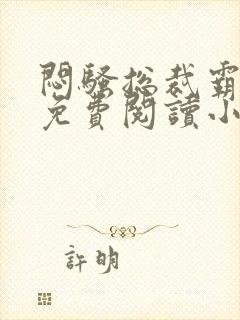 悶騷総裁霸
免費閱讀小
許明